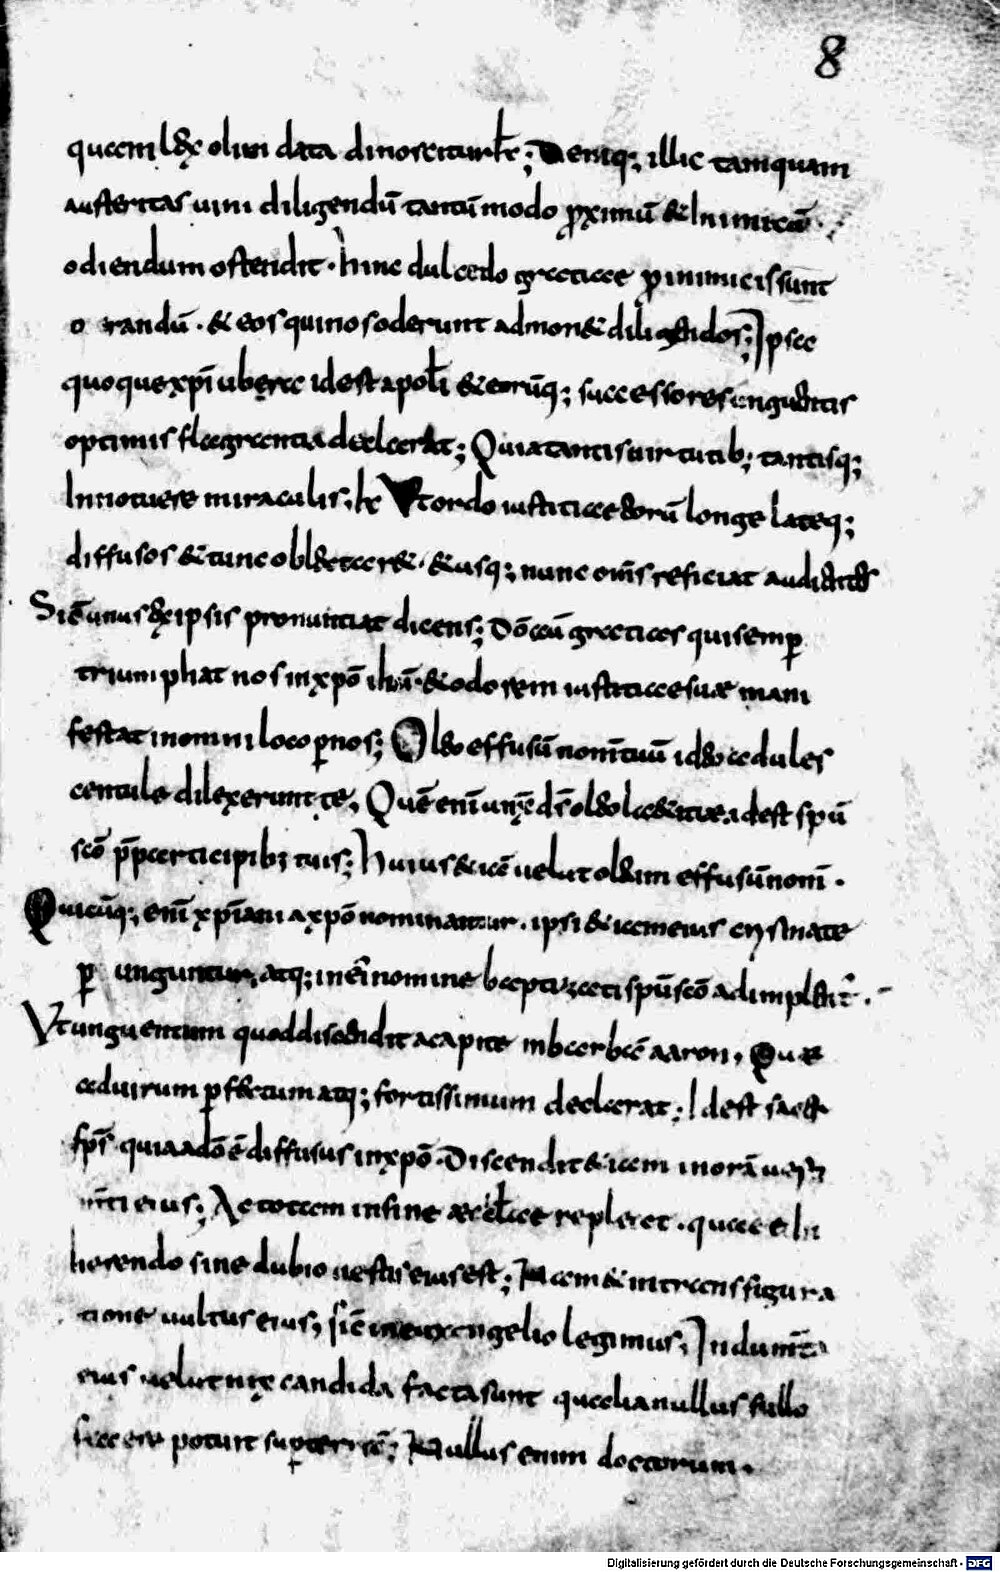 8
quam lex olim data dinoscitur; Deniq; illic tamquam
austeritas uini diligendū tantūmodo ꝓximū & Inimicū
odiendum ostendit · hinc dulcedo gratiae ꝓ inimicis sunt
orandū · & eos qui nos oderunt admon& diligendos; Ipsa
quoque xp̄i ubera id est apoƚi & eorūq; successores unguentis
optimis flagrantia declarat; Quia tantis uirtutib; tantisq;
Innotuere miraculis, Vt ordo iustitiae eorū longe lateq;
diffusos & tunc oblectar& · & usq; nunc om̄s reficiat audientes
Sic̄ unus ex ipsis pronuntiat dicens; Dō autē gratias qui semꝑ
triumphat nos in xp̄o ih̄u · & odorem iustitiae suae mani
festat in omni loco ꝑ nos; Oleo effusū nom̄ tuū ideo adules
centule dilexerunt te, Quē eni unxē ds̄ oleo laetitiae idest sp̄u
scō p̄ participib; tuis; Huius &iā uelut oleum effusū nom̄ ·
Quicūq; eni xp̄iani a xp̄o nominantur · ipsi &iam eius crysmate
ꝑ unguntur, atq; in ei nomine baptizati sp̄u scō adimplent᷑ ·
Vt unguentum quod discendit a capite in barbā aaron, Quae
ad uirum ꝑfectum atq; fortissimum declarat; Id est
sp̄s quia a dō ē diffusus in xp̄o · Discendit &iam in orā uesti
m̄ti eius; Ac totam in fine aecƚiae repleret · quae ei In
herendo sine dubio uestis eius est; Nam & in transfigura
tione uultus eius, sic̄ in euangelio legimus; Indum̄ta
eius uelut nix candida facta sunt qualia nullus fullo
facere potuit suꝑ terrā; Nullus enim doctorum ·
Digitalisierung gefördert durch die Deutsche Forschungsgemeinschaft - DFG